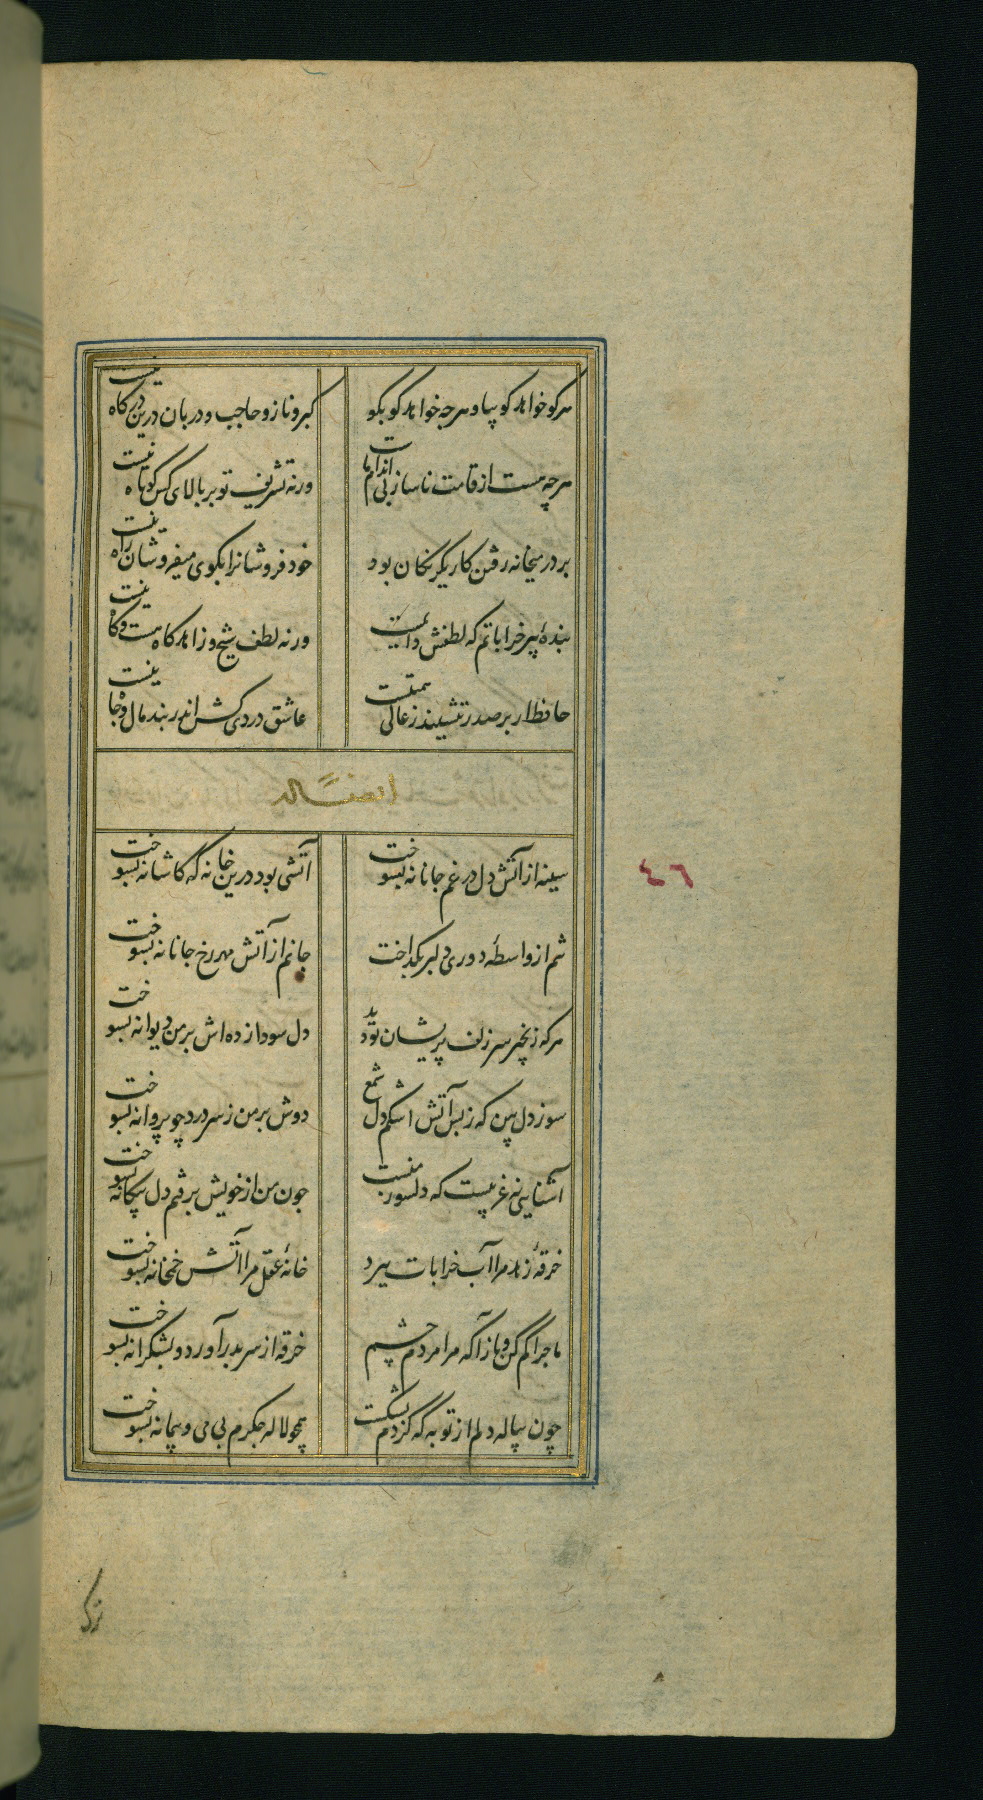 هر که خواهد کو بیا و هرچه خواهد کو بکو کبر و ناز و حاجب و دربان درین درکاه نیست
هر چه هست از قامت ناساز بی اندام ماست ورنه تشریف تو بر بالای کس کوتاه نیست
بر در میخانه رفتن کار یکرنکان بود خود فروشانرا بکوی میفروشان راه نیست
بندهٔ پیر خراباتم که لطفش دایمست ورنه لطف شیخ و زاهد کاه هست و کاه نیست
حافظ ار بر صدر ننشیند ز عالی همتیست عاشق دردی کش اندر بند مال و جاه نیست
ایضا له
سینه از آتش دل در غم جانانه بسوخت آتشی بود درین خانه که کاشانه بسوخت
تنم از واسطهٔ دوری دلبر بکداخت جانم از آتش مهر رخ جانانه بسوخت
هر که زنجیر سر زلف پریشان تو دید دل سودازده اش بر من دیوانه بسوخت
سوز دل بین که ز بس آتش اشکم دل شمع دوش بر من ز سر درد چو پروانه بسوخت
آشنایی نه غریبست که دلسوز منست چون من از خویش برفتم دل بیکانه بسوخت
خرقهٔ زهد مرا آب خرابات ببرد خانهٔ عقل مرا آتش خمخانه بسوخت
ماجرا کم کن و بازآ که مرا مردم چشم خرقه از سر بدر آورد و بشکرانه بسوخت
چون پیاله دلم از توبه که کردم بشکست همچو لاله جکرم بی می و پیمانه بسوخت
٤٦
ترک